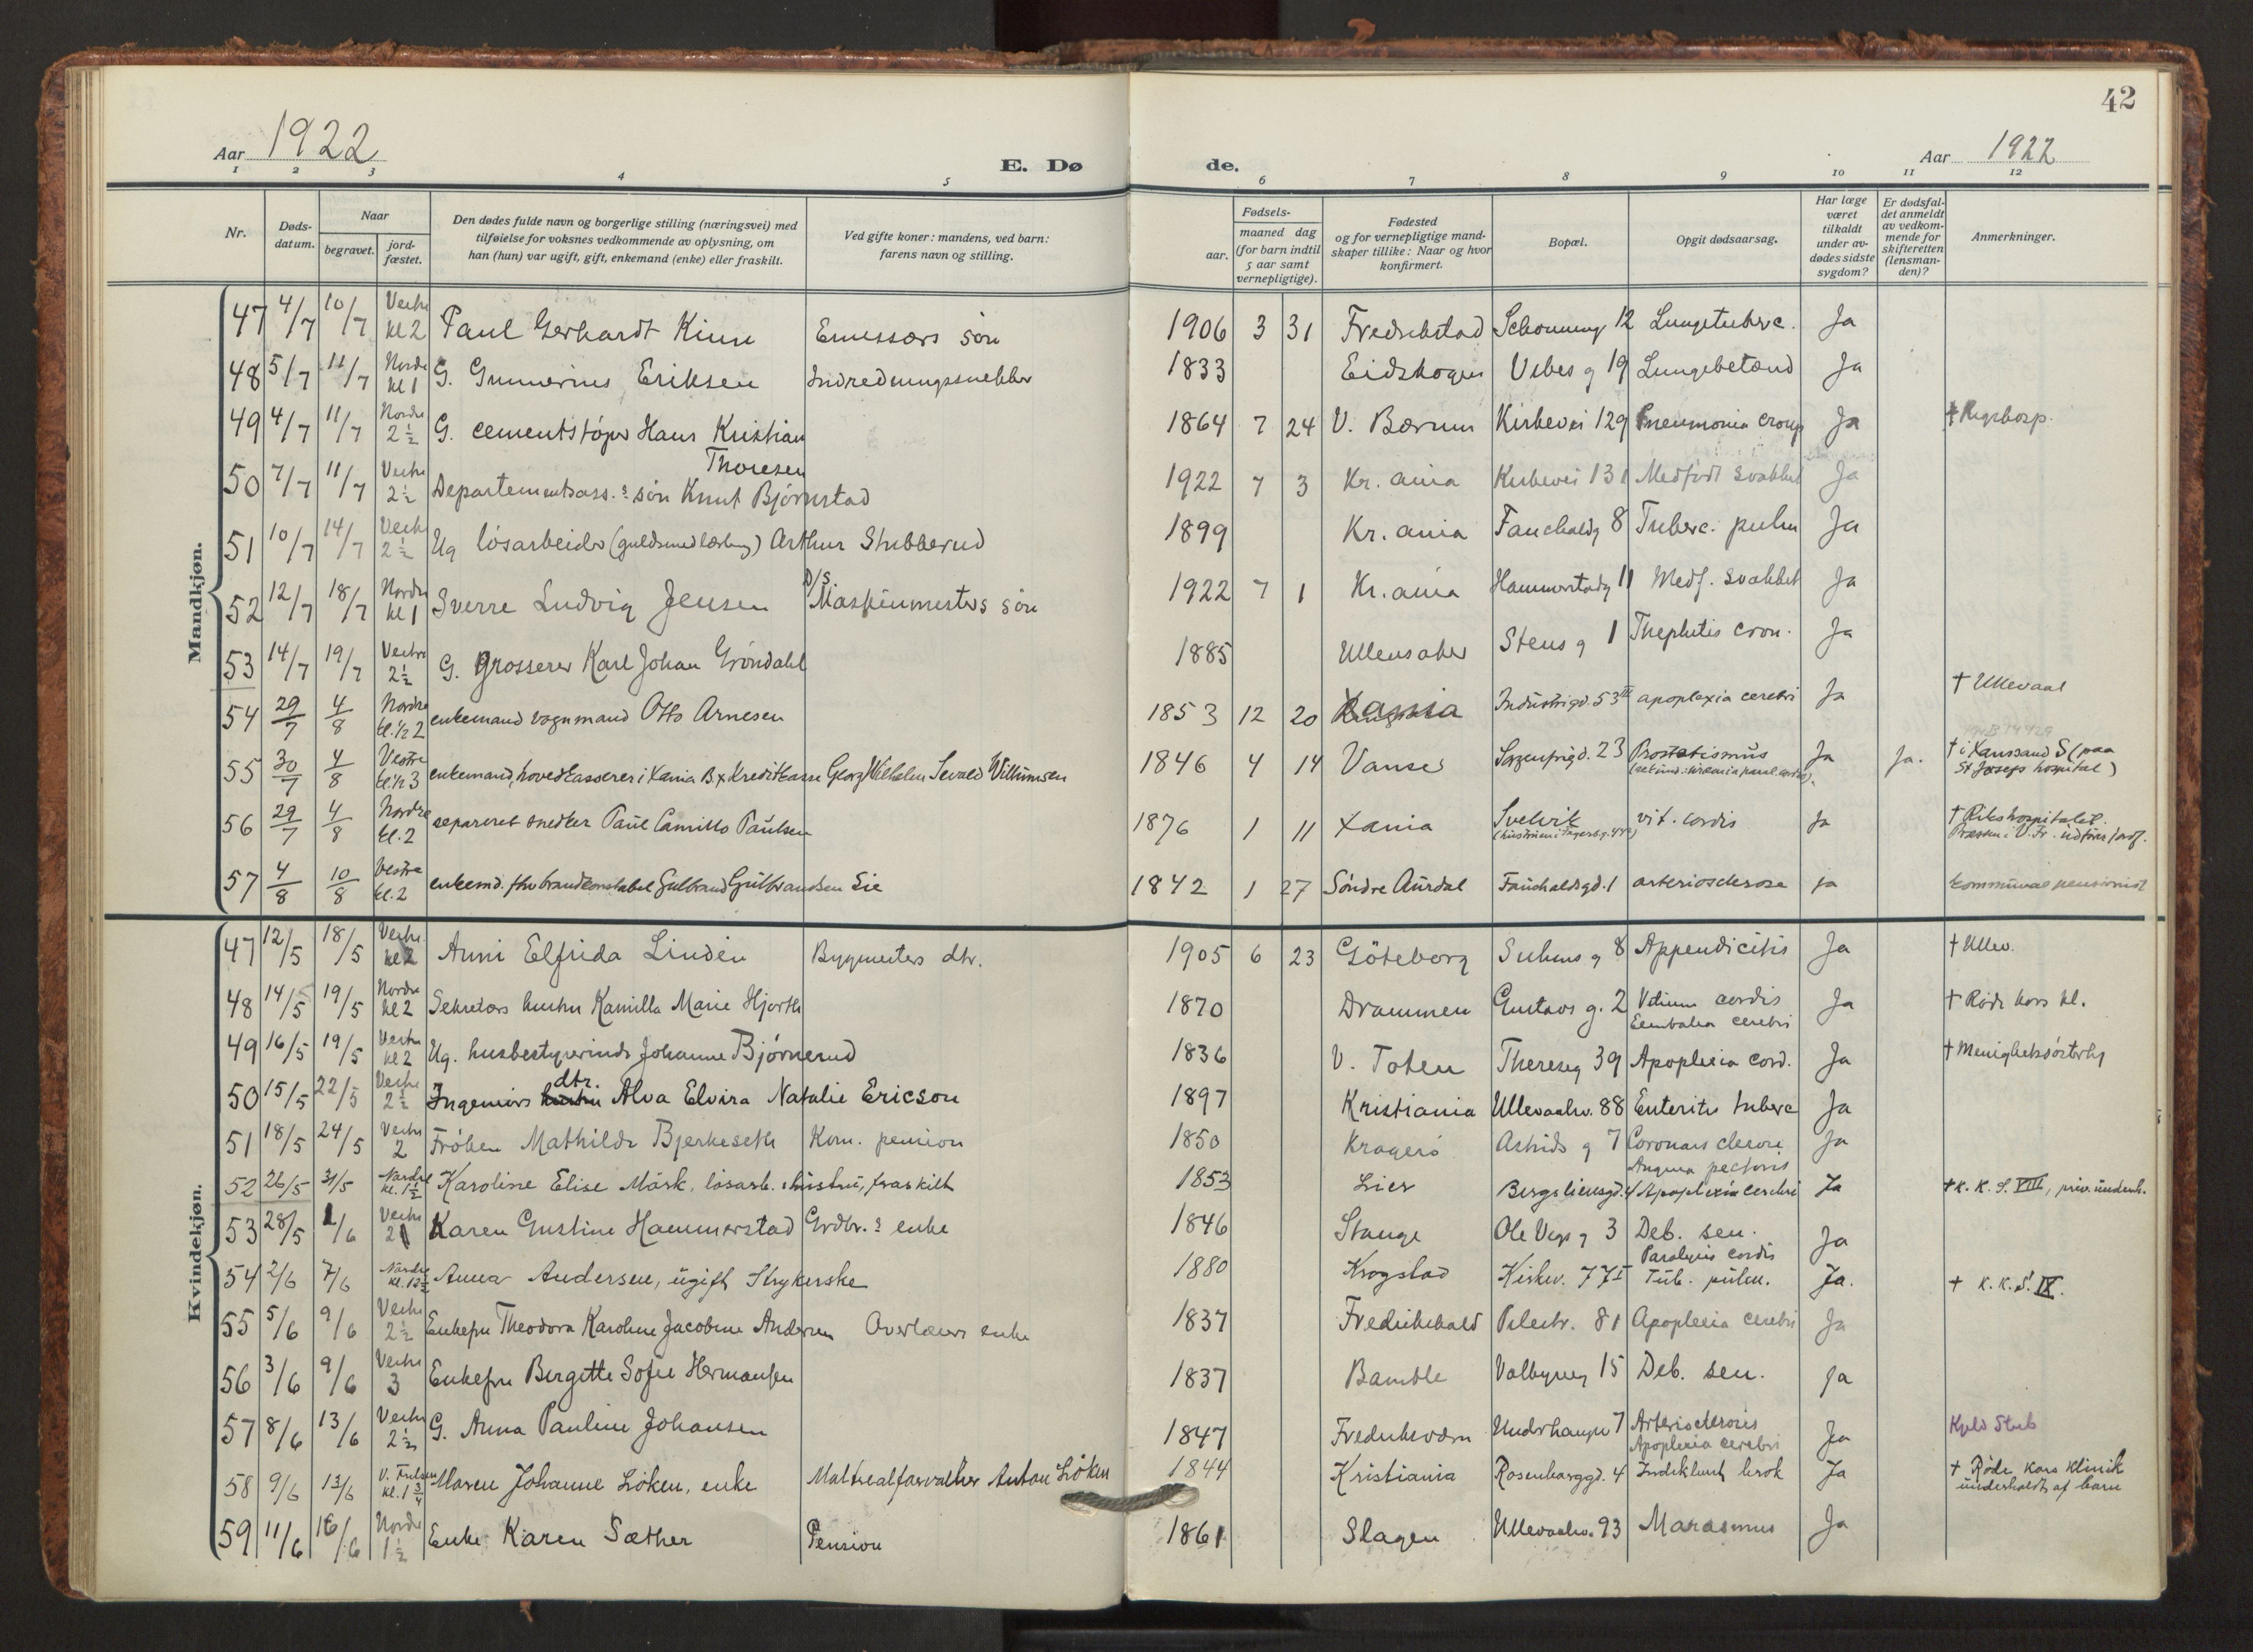 42
Aar 1922
E. Dø de.
Aar 1922
1 2 3 4 5 6 7 8 9 10 11 12
Nr.
Døds-datum.
Naar
begravet.
jord-fæstet.
Den dødes fulde navn og borgerlige stilling (næringsvei) med
tilføielse for voksnes vedkommende av oplysning, om
han (hun) var ugift, gift, enkemand (enke) eller fraskilt.
Ved gifte koner: mandens, ved barn:
farens navn og stilling.
Fødsels-
aar.
maaned dag
(for barn indtil
5 aar samt
vernepligtige).
Fødested
og for vernepligtige mand-
skaper tillike: Naar og hvor
konfirmert.
Bopæl.
Opgit dødsaarsag.
Har læge
været
tilkaldt
under av-
dødes sidste
sygdom?
Er dødsfal-
det anmeldt
av vedkom-
mende for
skifteretten
(lensman-
den)?
Anmerkninger.
Mandkjøn.
47 4/7 10/7 Vestre kl 2 Paul Gerhardt Kinn Emissærs søn 1906 3 31 Fredrikstad 12 Lungetuberc. Ja
48 5/7 11/7 Nordre kl 1 G. Gunnerius Eriksen Indredningssnekker 1833 Eidskogen Vibes g 19 Lungebetænd Ja
49 4/7 11/7 Nordre 2½ G. cementstøper Hans Kristian Thoresen 1864 7 24 V. Bærum Kirkevei 129 Pneumonia croup Ja † Rigshosp.
50 7/7 11/7 Vestre 2½ Departementsass.s søn Knut Bjørnstad 1922 7 3 Kr.ania Kirkevei 131 Medfødt svakhet Ja
51 10/7 14/7 Vestre 2½ Ug løsarbeider (guldsmedlærling) Arthur Stubberud 1899 Kr.ania Fauchaldg 8 Tuberc. pulm Ja
52 12/7 18/7 Nordre kl 1 Sverre Ludvig Jensen D/S. Maskinmesters søn 1922 7 1 Kr.ania Hammerstadg 11 Medf. svakhet Ja
53 14/7 19/7 Vestre 2½ G. Grosserer Karl Johan Grøndahl 1885 Ullensaker Stens g 1 Nephritis cron. Ja
54 29/7 4/8 Nordre kl. ½ 2 enkemand vognmand Otto Arnesen 1853 12 20 Xania Industrigd. 53 III apoplexia cerebri Ja † Ullevaal
55 30/7 4/8 Vestre kl. ½ 3 enkemand, hovedkasserer i Xania B x Kreditkasse Georg Wilhelm Sevald Willumsen 1846 4 14 Vanse Sorgenfrigd. 23 Prostatismus Ja ja. † i Xanssand S (paa
St Josefs hospital)
56 29/7 4/8 Nordre kl. 2 separeret snedker Paul Camillo Paulsen 1876 1 11 Xania Svelvik vit. cordis Ja † Rikshospitalet.
57 4/8 10/8 Vestre kl. 2 enkemd. fhv brandkonstabel Gulbrand Gulbrandsen Lie 1842 1 27 Søndre Aurdal Fauchaldsgd. 1 arteriosclerose ja kommunal pensionist
Kvindekjøn.
47 12/5 18/5 Vestre kl 2 Anni Elfrida Lindén Bygmesters dtr. 1905 6 23 Göteborg Suhms g 8 Appendicitis Ja † Ullev.
48 14/5 19/5 Nordre kl 2 Sekretærs hustru Kamilla Marie Hjorth 1870 Drammen Gustavs g. 2 Vitium cordis
Embolia cerebri Ja † Røde kors kl.
49 16/5 19/5 Vestre kl 2 Ug. husbestyrerinde Johanne Bjørnerud 1836 V. Toten Thereseg 39 Apoplexia cord. Ja † Menighetssøsterhj
50 15/5 22/5 Vestre 2½ Ingeniørs hustru dtr. Alva Elvira Natalie Ericson 1897 Kristiania Ullevaalsv. 88 Enteritis tuberc Ja
51 18/5 24/5 Vestre 2 Frøken Mathilde Bjerkeseth Kom. pension 1850 Kragerø Astrids g 7 Coronarsclerose
Angina pectoris Ja
52 26/5 31/5 Nordre kl. 1½ Karoline Elise Mørk, løsarb. hustru, fraskilt 1853 Lier Bergsliensgd. 4 Apoplexia cerebri Ja † K. K. S. VIII, priv. underh.
53 28/5 1/6 Vestre 2 Karen Gustine Hammerstad Grdbr.s enke 1846 Stange Ole Vigs g 3 Deb. sen.
Paralysis cordis Ja
54 2/6 7/6 Nordre Anna Andersen, ugift Strykerske 1880 Krogstad Kirkev. 77 I Tub. pulm. Ja. † K. K. S. IX.
55 5/6 9/6 Vestre 2½ Enkefru Theodora Karoline Jacobine Andersen Overlærers enke 1837 Fredrikshald Pilestr. 81 Apoplexia cerebri Ja
56 3/6 9/6 Vestre 3 Enkefru Birgitte Sofie Hermansen 1837 Bamble Valkyrieg 15 Deb. sen. ja
57 8/6 13/6 Vestre 2½ G. Anna Pauline Johansen 1847 Fredriksværn Underhaugsv 7 Arteriosclerosis
Apoplexia cerebri Ja
58 9/6 13/6 V. Frelser kl. 1¾ Maren Johanne Løken, enke Matrealforvalter Anton Løken 1844 Kristiania Rosenborggd. 4 Indeklemt brok Ja † Røde Kors Klinik
underholdt af barn
59 11/6 16/6 Nordre 1½ Enke Karen Sæther Pension 1861 Slagen Ullevaalsv. 93 Marasmus Ja